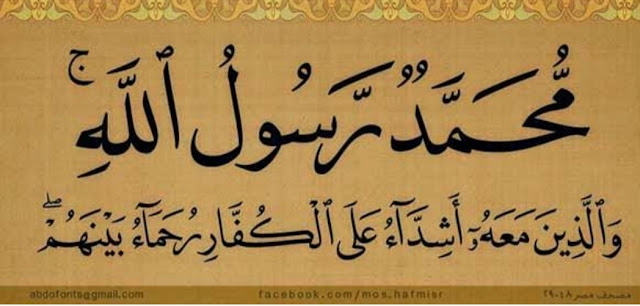 مُّحَمَّدٌ رَّسُولُ ٱللَّهِ ۚ
وَٱلَّذِينَ مَعَهُۥٓ أَشِدَّآءُ عَلَى ٱلْكُفَّارِ رُحَمَآءُ بَيْنَهُمْ ۖ
abdofonts@gmail.com facebook.com/mos.hafmisr مصحف مصر ٢٩:٤٨